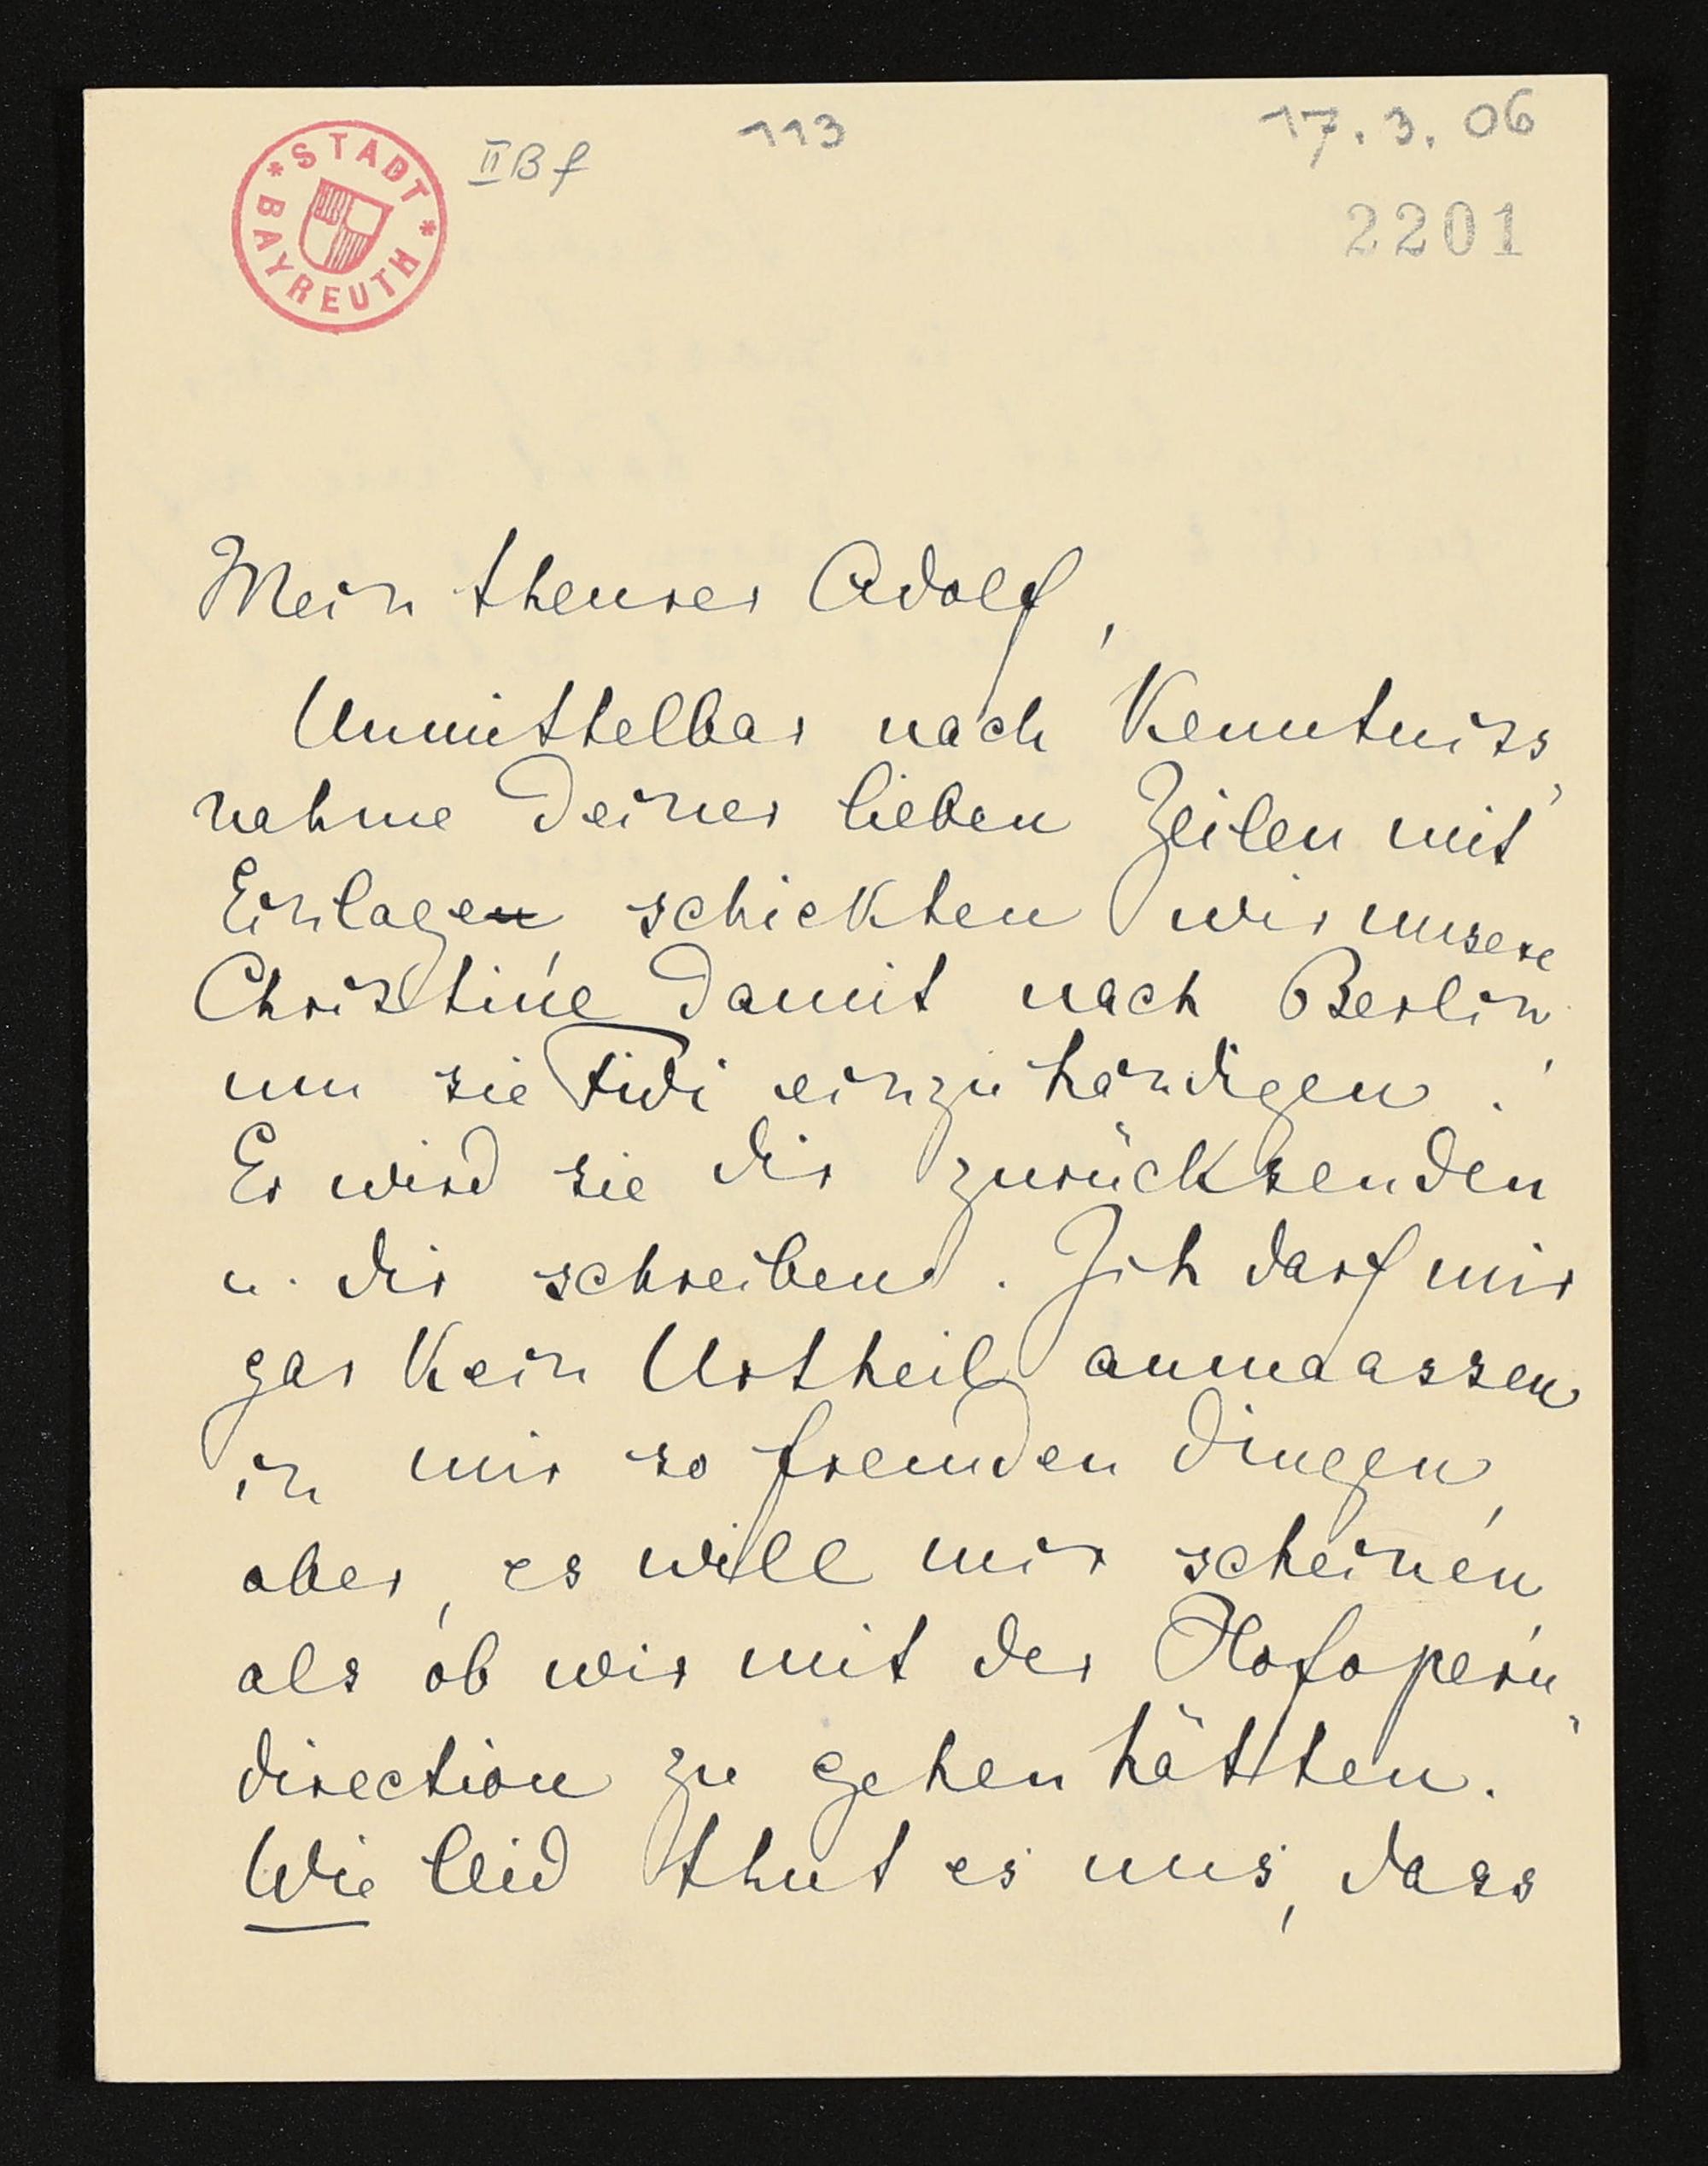 * STADT * BAYREUTH
II B f
113
17. 3. 06
2201
Mein theurer Adolf,
Unmittelbar nach Kenntniss-
nahme Deiner lieben Zeilen mit
Einlagen schickten wir unsere
Christine damit nach Berlin,
um sie Fidi einzuhändigen.
Er wird sie dir zurücksenden
u. dir schreiben. Ich darf mir
gar kein Urtheil anmaassen
in mir so fremden Dingen,
aber, es will mir scheinen,
als ob wir mit der Hofopern-
direction zu gehen hätten.
Wie leid thut es uns, dass